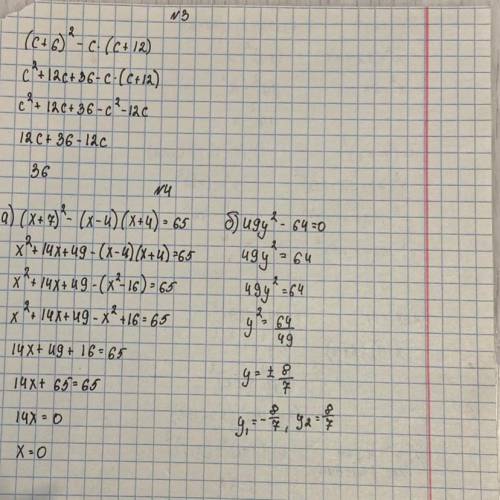 №3
(c+6)² - c · (c+12)
c²+12c+36-c·(c+12)
c²+12c+36-c²-12c
12c+36-12c
36
№4
а) (x+7)² - (x-4)(x+4)=65
x²+14x+49-(x-4)(x+4)=65
x²+14x+49-(x²-16)=65
x²+14x+49-x²+16=65
14x+49+16=65
14x+65=65
14x=0
x=0
б) 49y² - 64=0
49y² = 64
49y²=64
y²= 64/49
y= ± 8/7
y₁=-8/7, y₂=8/7